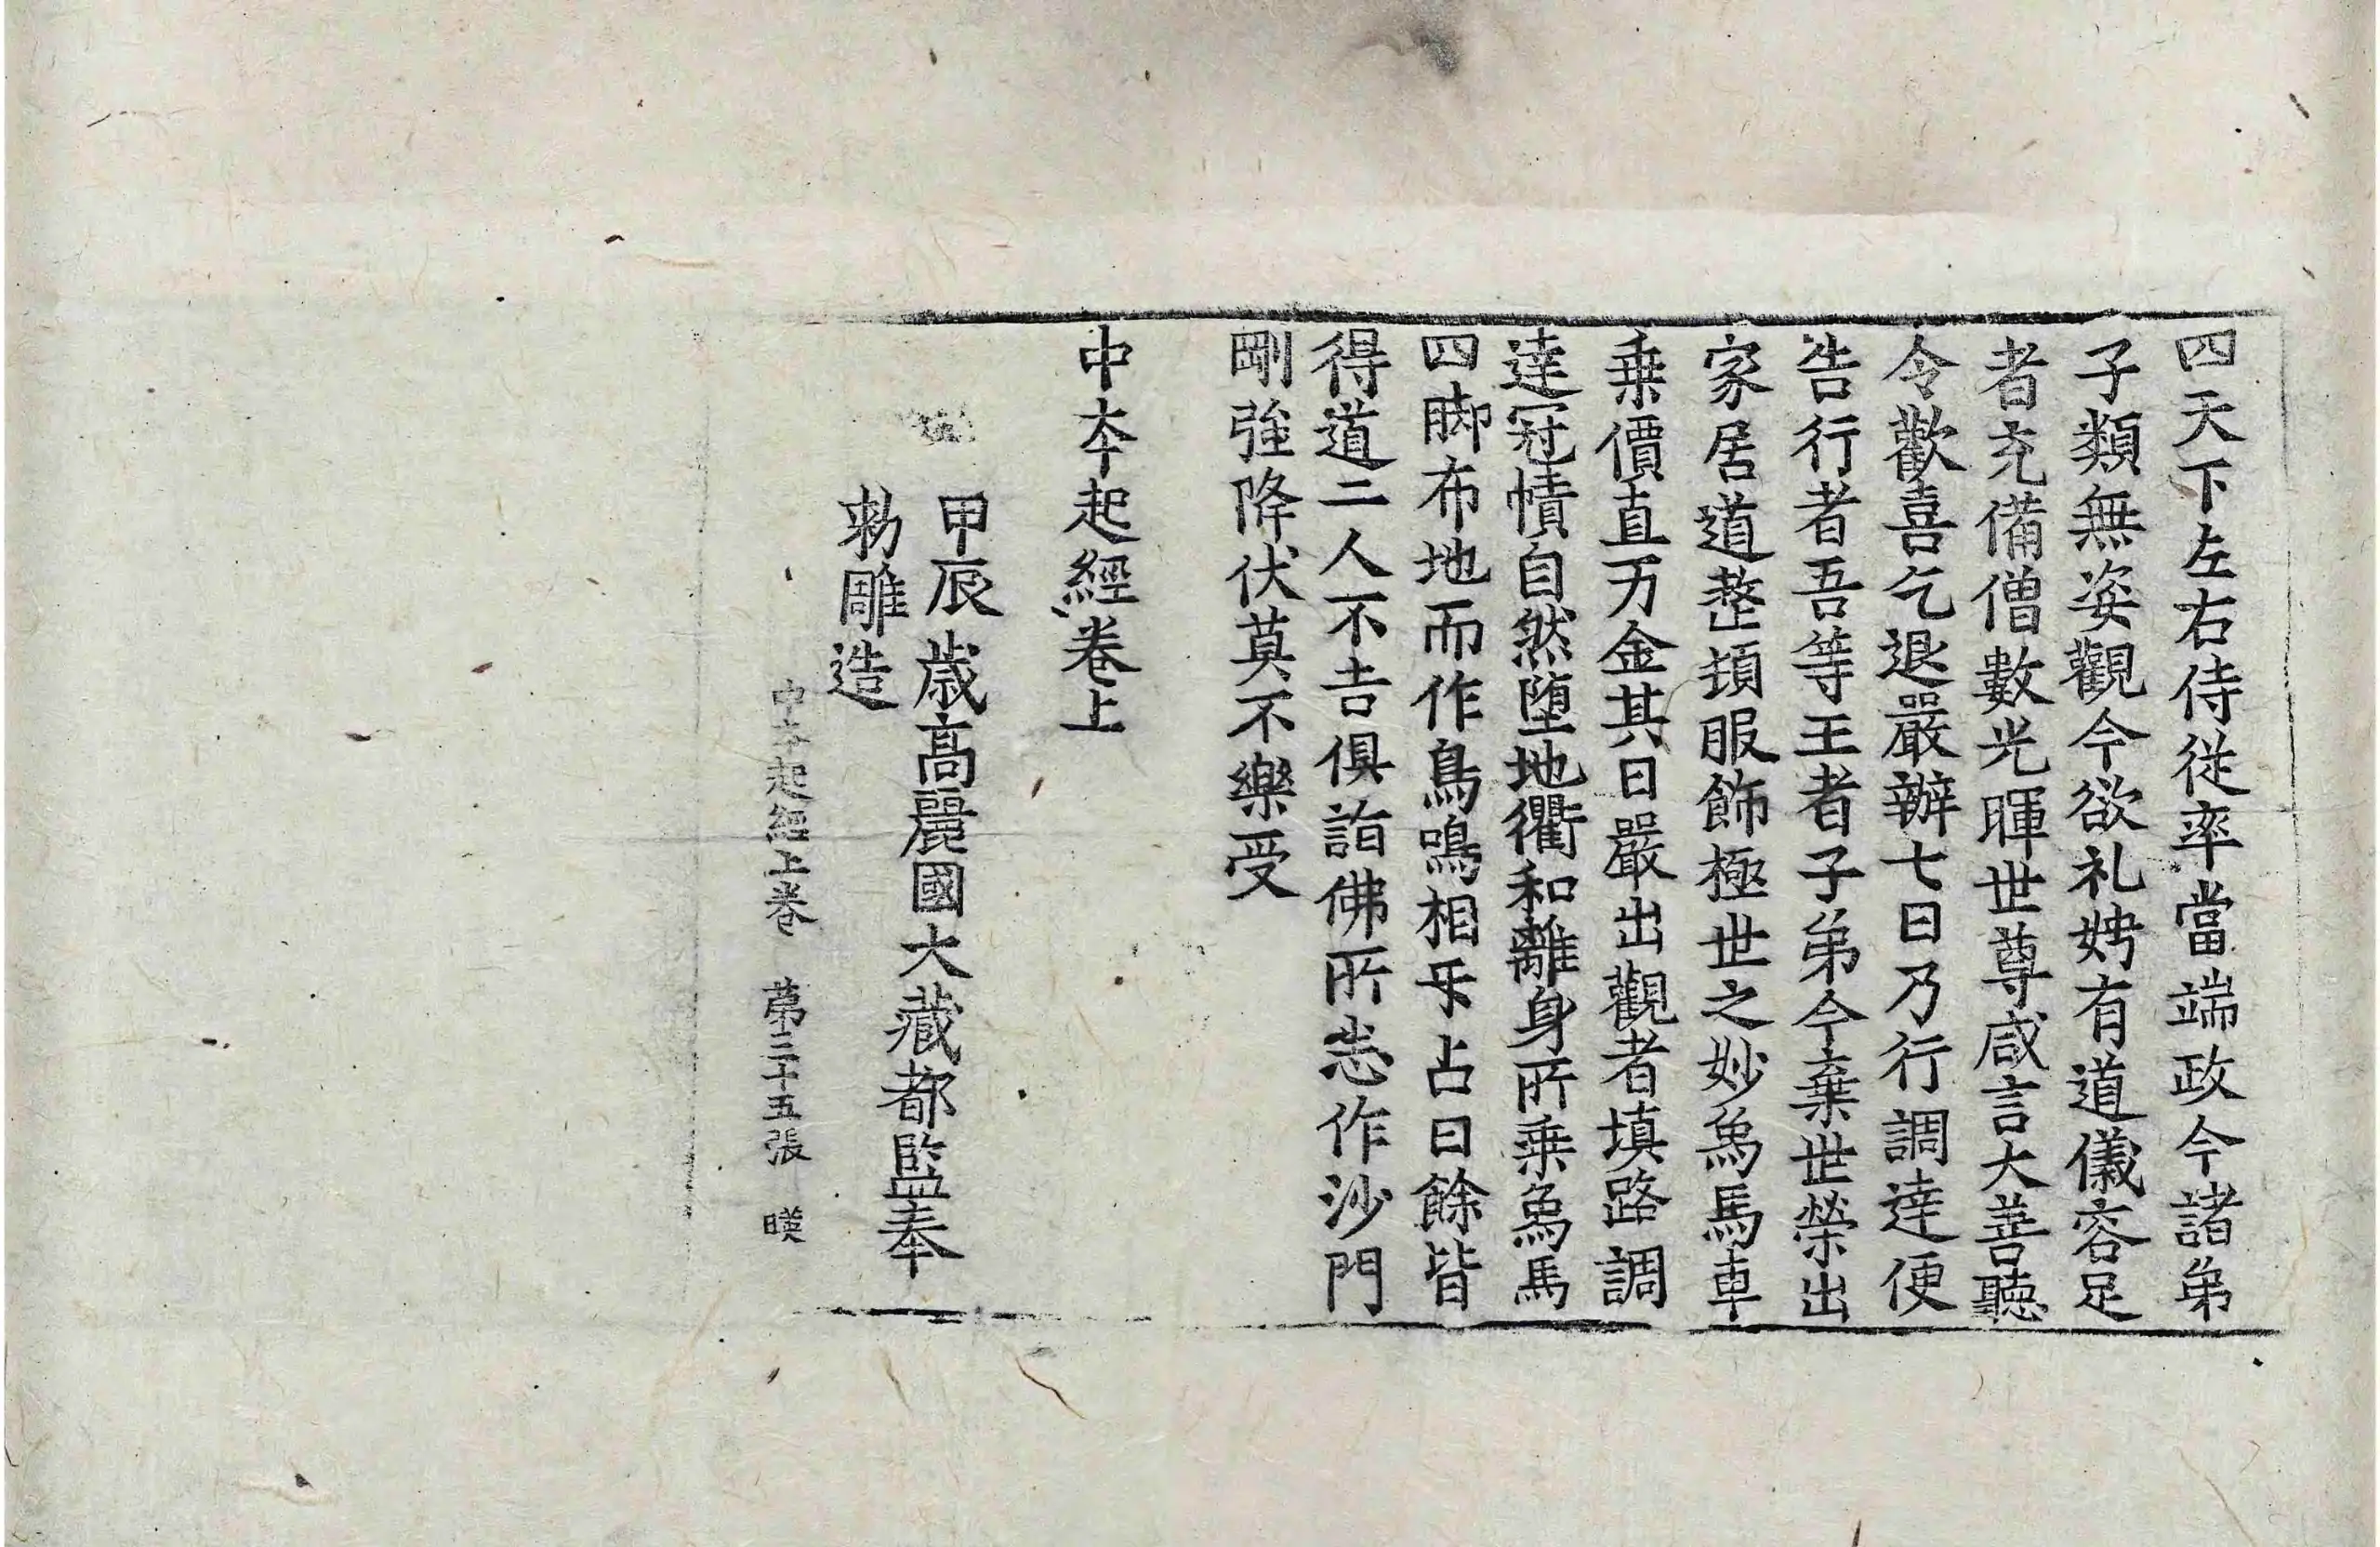 四天下左右侍從率當端政今諸弟
子類無姿觀今欲礼娉有道儀容足
者充備僧數光暉世尊咸言大善聽
令歡喜乞退嚴辦七日乃行調達便
告行者吾等王者子弟今棄世榮出
家居道整頓服飾極世之妙象馬車
乗價直万金其日嚴出觀者填路調
達冠幘自然墮地衢和離身所乗象馬
四脚布地而作鳥鳴相㸦占曰餘皆
得道二人不吉俱詣佛所志作沙門
剛強降伏莫不樂受
中夲起經卷上
甲辰歳高麗國大藏都監奉
勑雕造
中夲起經上卷　第二十五張　暎